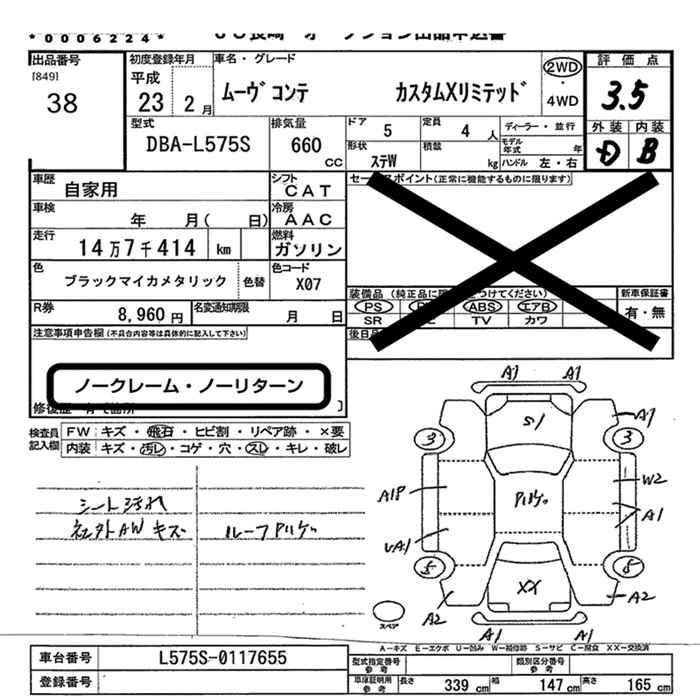 *0006224* JU長崎 オークション出品申込書
出品番号 初度登録年月 車名・グレード 評価点
[849] 38 平成23 2月 ムーヴ コンテ カスタムXリミテッド 2WD・4WD 3.5
型式 排気量 ドア 5 定員 4人 ディーラー・並行 外装 内装
DBA-L575S 660cc 形状 ステW 積載 kg モデル年式 年 ハンドル 左・右 D B
車歴 自家用 シフト CAT セールスポイント(正常に機能するものに限ります)
車検 年 月( 日) 冷房 AAC
走行 14万7千414 km 燃料 ガソリン
色 ブラックマイカメタリック 色替 色コード X07 装備品 新車保証書
PS ABS エアB 有・無
R券 8,960円 名変通知期限 月 日 SR TV カワ
注意事項申告欄(不具合内容等は具体的に記入して下さい) 後日
ノークレーム・ノーリターン
検査員記入欄 FW キズ・飛石・ヒビ割・リペア跡・×要
内装 キズ・汚レ・コゲ・穴・スレ・キレ・破レ
シート汚れ
社外AW キズ ルーフPリケ
A1 A1
S1 A1
3 3
A1P Pリケ W2
UA1 A1
5 5
A2 XX A2
スペア
A1 A1
A-キズ E-エクボ U-凹み W-補修跡 S-サビ C-腐食 XX-交換済
車台番号 L575S-0117655 型式指定番号 参考 類別区分番号 参考
登録番号 車庫証明用 参考 長さ 339 cm 幅 147 cm 高さ 165 cm